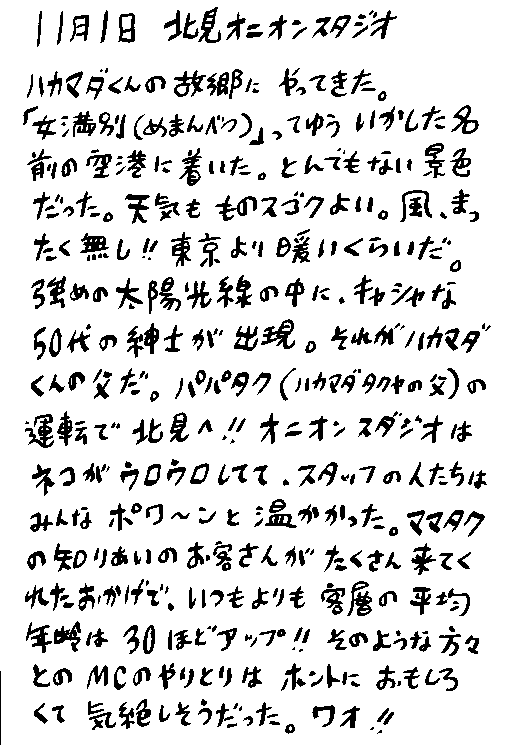 11月1日 北見オニオンスタジオ
ハカマダくんの故郷に やってきた。
「女満別(めまんべつ)」ってゆう いかした名
前の空港に着いた。とんでもない景色
だった。天気も ものスゴクよい。風、まっ
たく無し!! 東京より暖いくらいだ。
強めの太陽光線の中に、キャシャな
50代の紳士が 出現。それがハカマダ
くんの父だ。パパタク(ハカマダタクヤの父)の
運転で 北見へ!! オニオンスタジオは
ネコがウロウロしてて、スタッフの人たちは
みんな ポワ〜ンと 温かかった。ママタク
の知りあいのお客さんが たくさん来てく
れたおかげで、いつもよりも 客層の平均
年齢は 30ほどアップ!! そのような方々
との MCのやりとりは ホントに おもしろ
くて 気絶しそうだった。ワオ!!